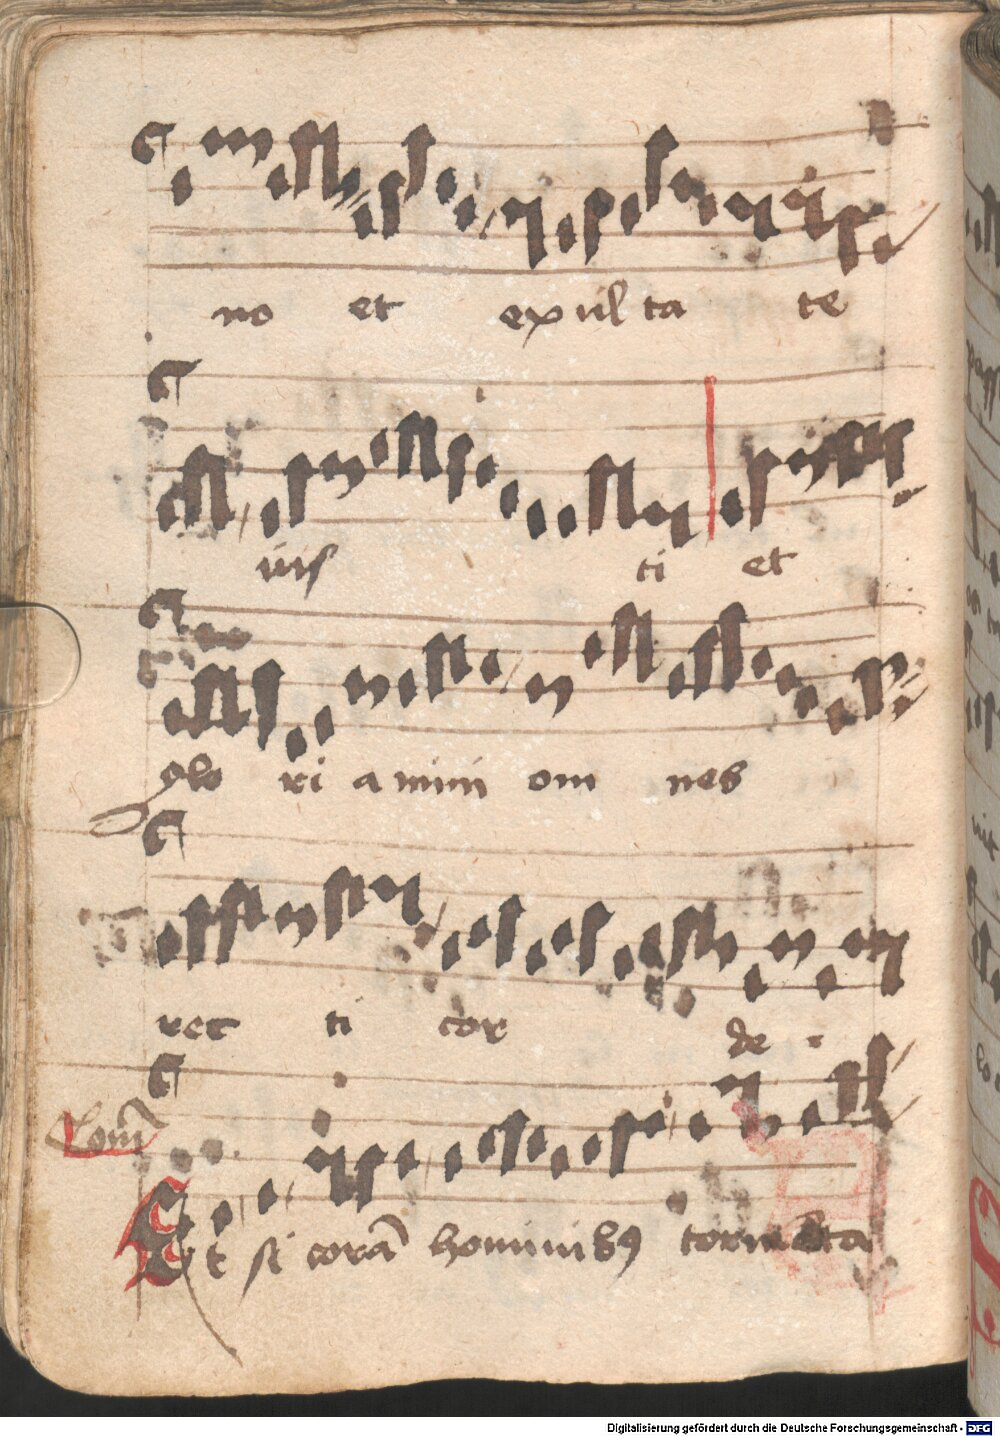 no et exul ta te
ius ti et
glo ri a mini om nes
rec ti cor de
Com̄
Et si corā hominibꝯ tormēta
Digitalisierung gefördert durch die Deutsche Forschungsgemeinschaft - DFG